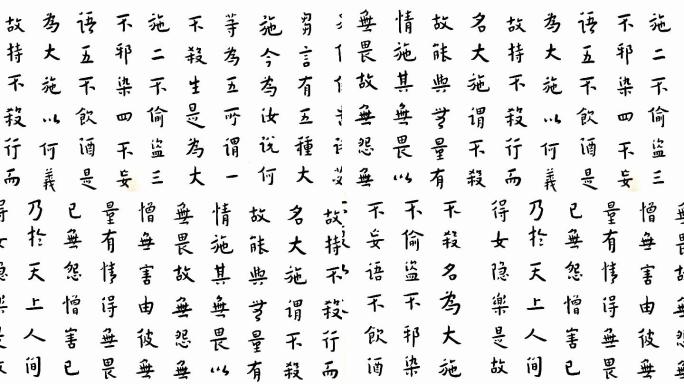 施二不偷盜三
不邪染四不妄
語五不飲酒是
為大施以何義
故持不殺行而
名大施謂不殺
故能與無量有
情施其無畏以
無畏故無怨無
芻言有五種大
施今為汝說何
等為五所謂一
不殺生是為大
施二不偷盜三
不邪染四不妄
語五不飲酒是
為大施以何義
故持不殺行而
無畏故無怨無
憎無害由彼無
量有情得無畏
已無怨憎害已
乃於天上人間
得安隱樂是故
不殺名為大施
不偷盜不邪染
不妄語不飲酒
故持不殺行而
名大施謂不殺
故能與無量有
情施其無畏以
無畏故無怨無
憎無害由彼無
量有情得無畏
已無怨憎害已
乃於天上人間
得安隱樂是故